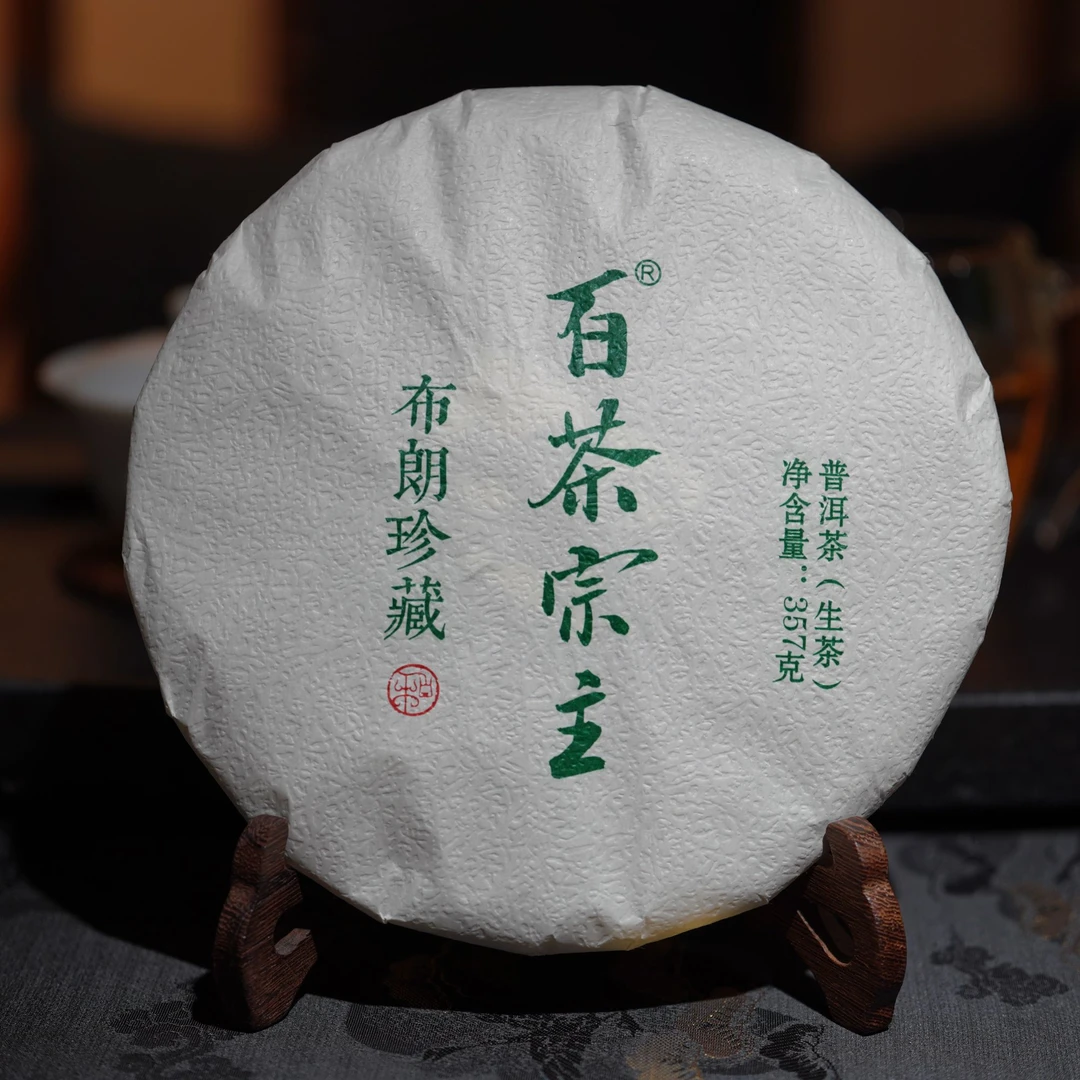 百茶宗主®
布朗珍藏
普洱茶(生茶)
净含量:357克